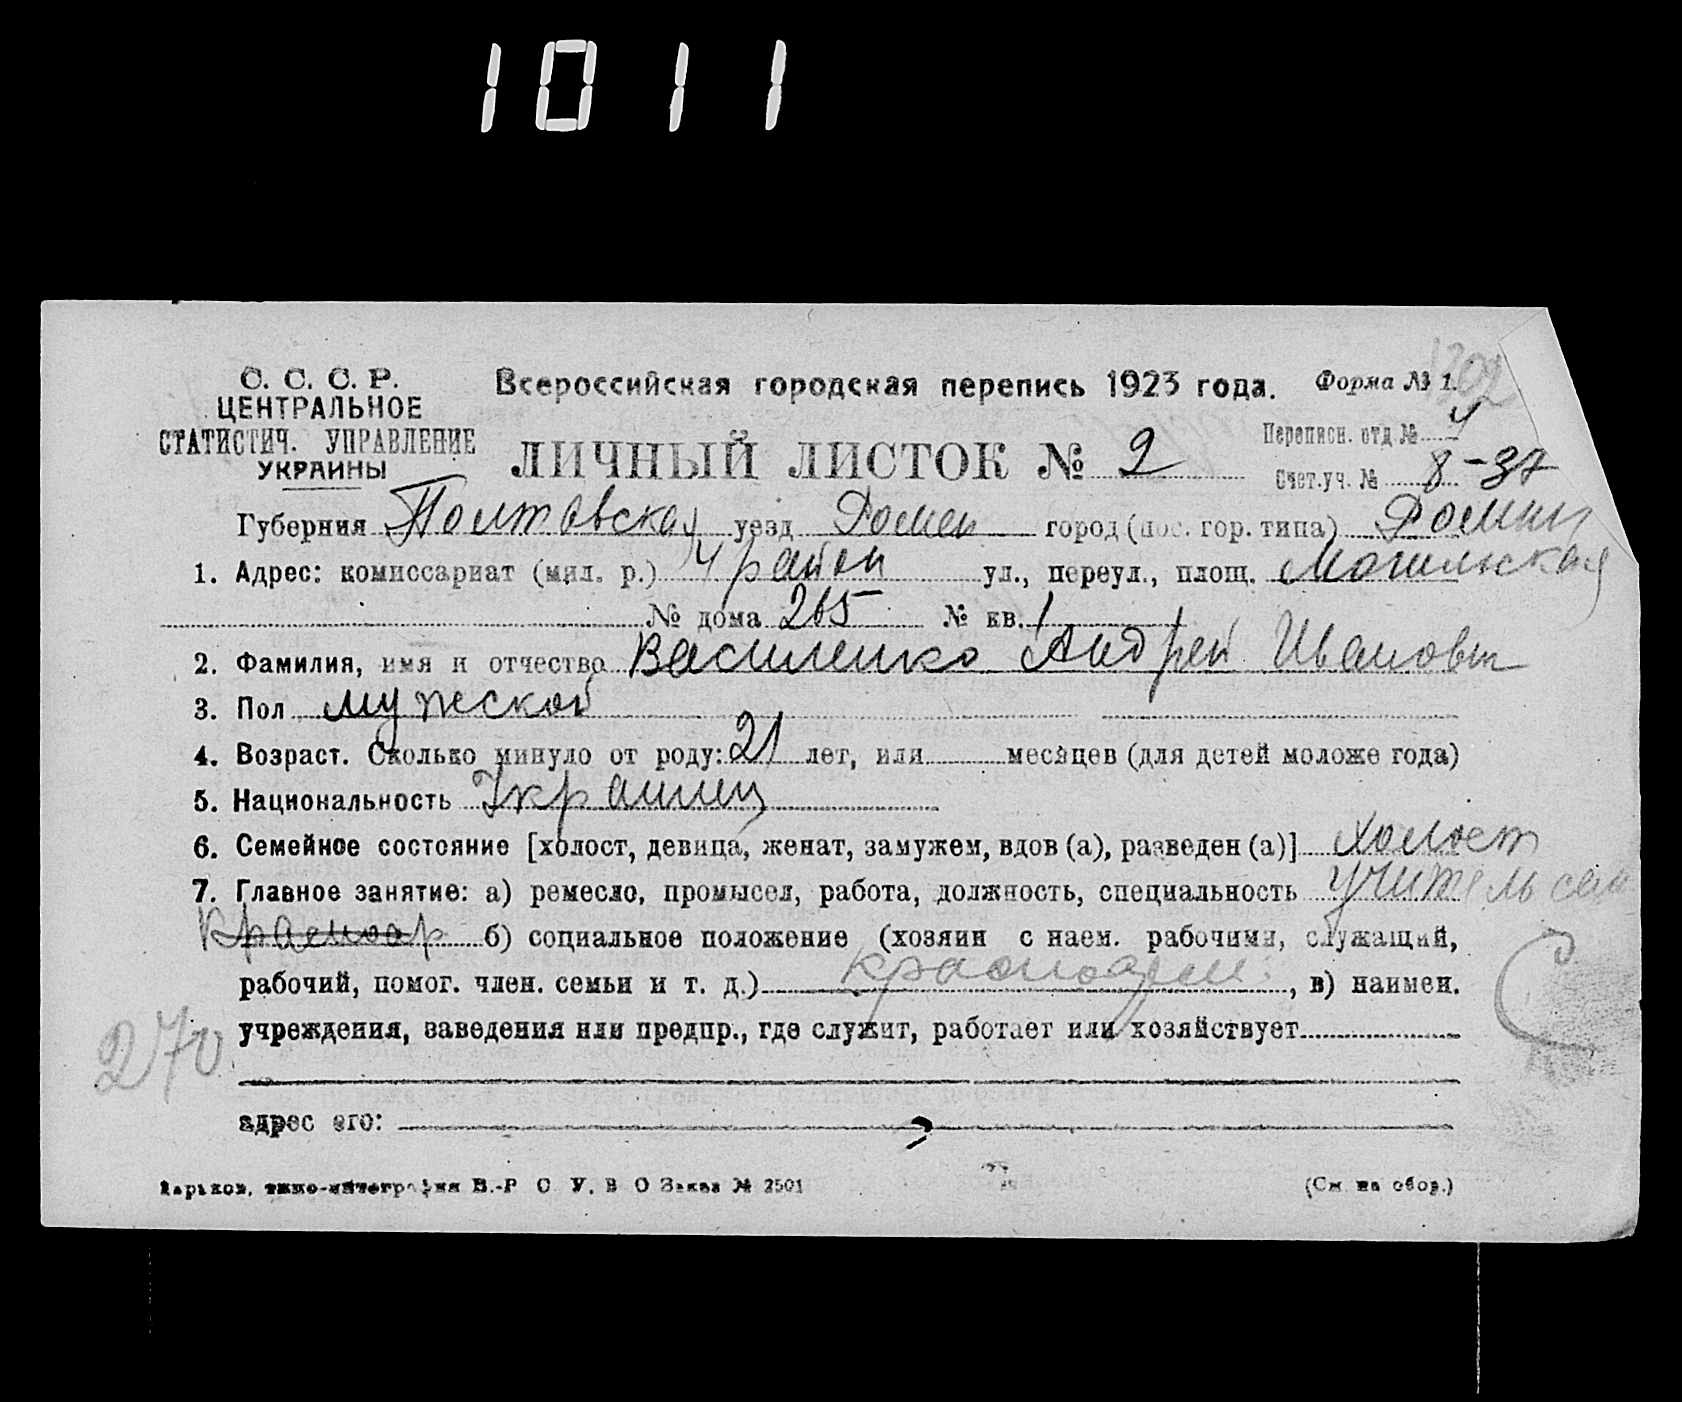 1011
1302
С. С. С. Р.
ЦЕНТРАЛЬНОЕ
СТАТИСТИЧ. УПРАВЛЕНИЕ
УКРАИНЫ
Всероссийская городская перепись 1923 года. Форма № 1.
ЛИЧНЫЙ ЛИСТОК № 2
Переписн. отд № 4
Счет.уч. № 8-37
Губерния Полтавская уезд Ромен город (пос. гор. типа) Ромны
1. Адрес: комиссариат (мил. р.) 4 район ул., переул., площ.
№ дома 265 № кв. 1
2. Фамилия, имя и отчество Василенко Андрей Иванович
3. Пол мужской
4. Возраст. Сколько минуло от роду: 21 лет, или месяцев (для детей моложе года)
5. Национальность Украинец
6. Семейное состояние [холост, девица, женат, замужем, вдов (а), разведен (а)] холост
7. Главное занятие: а) ремесло, промысел, работа, должность, специальность учитель
б) социальное положение (хозяин с наем. рабочими, служащий,
рабочий, помог. член. семьи и т. д.) красноарм , в) наимен.
учреждения, заведения или предпр., где служит, работает или хозяйствует
270
адрес его:
Харьков, типо-литография В.-Р С У. В О Заказ № 2501 (См на обор.)